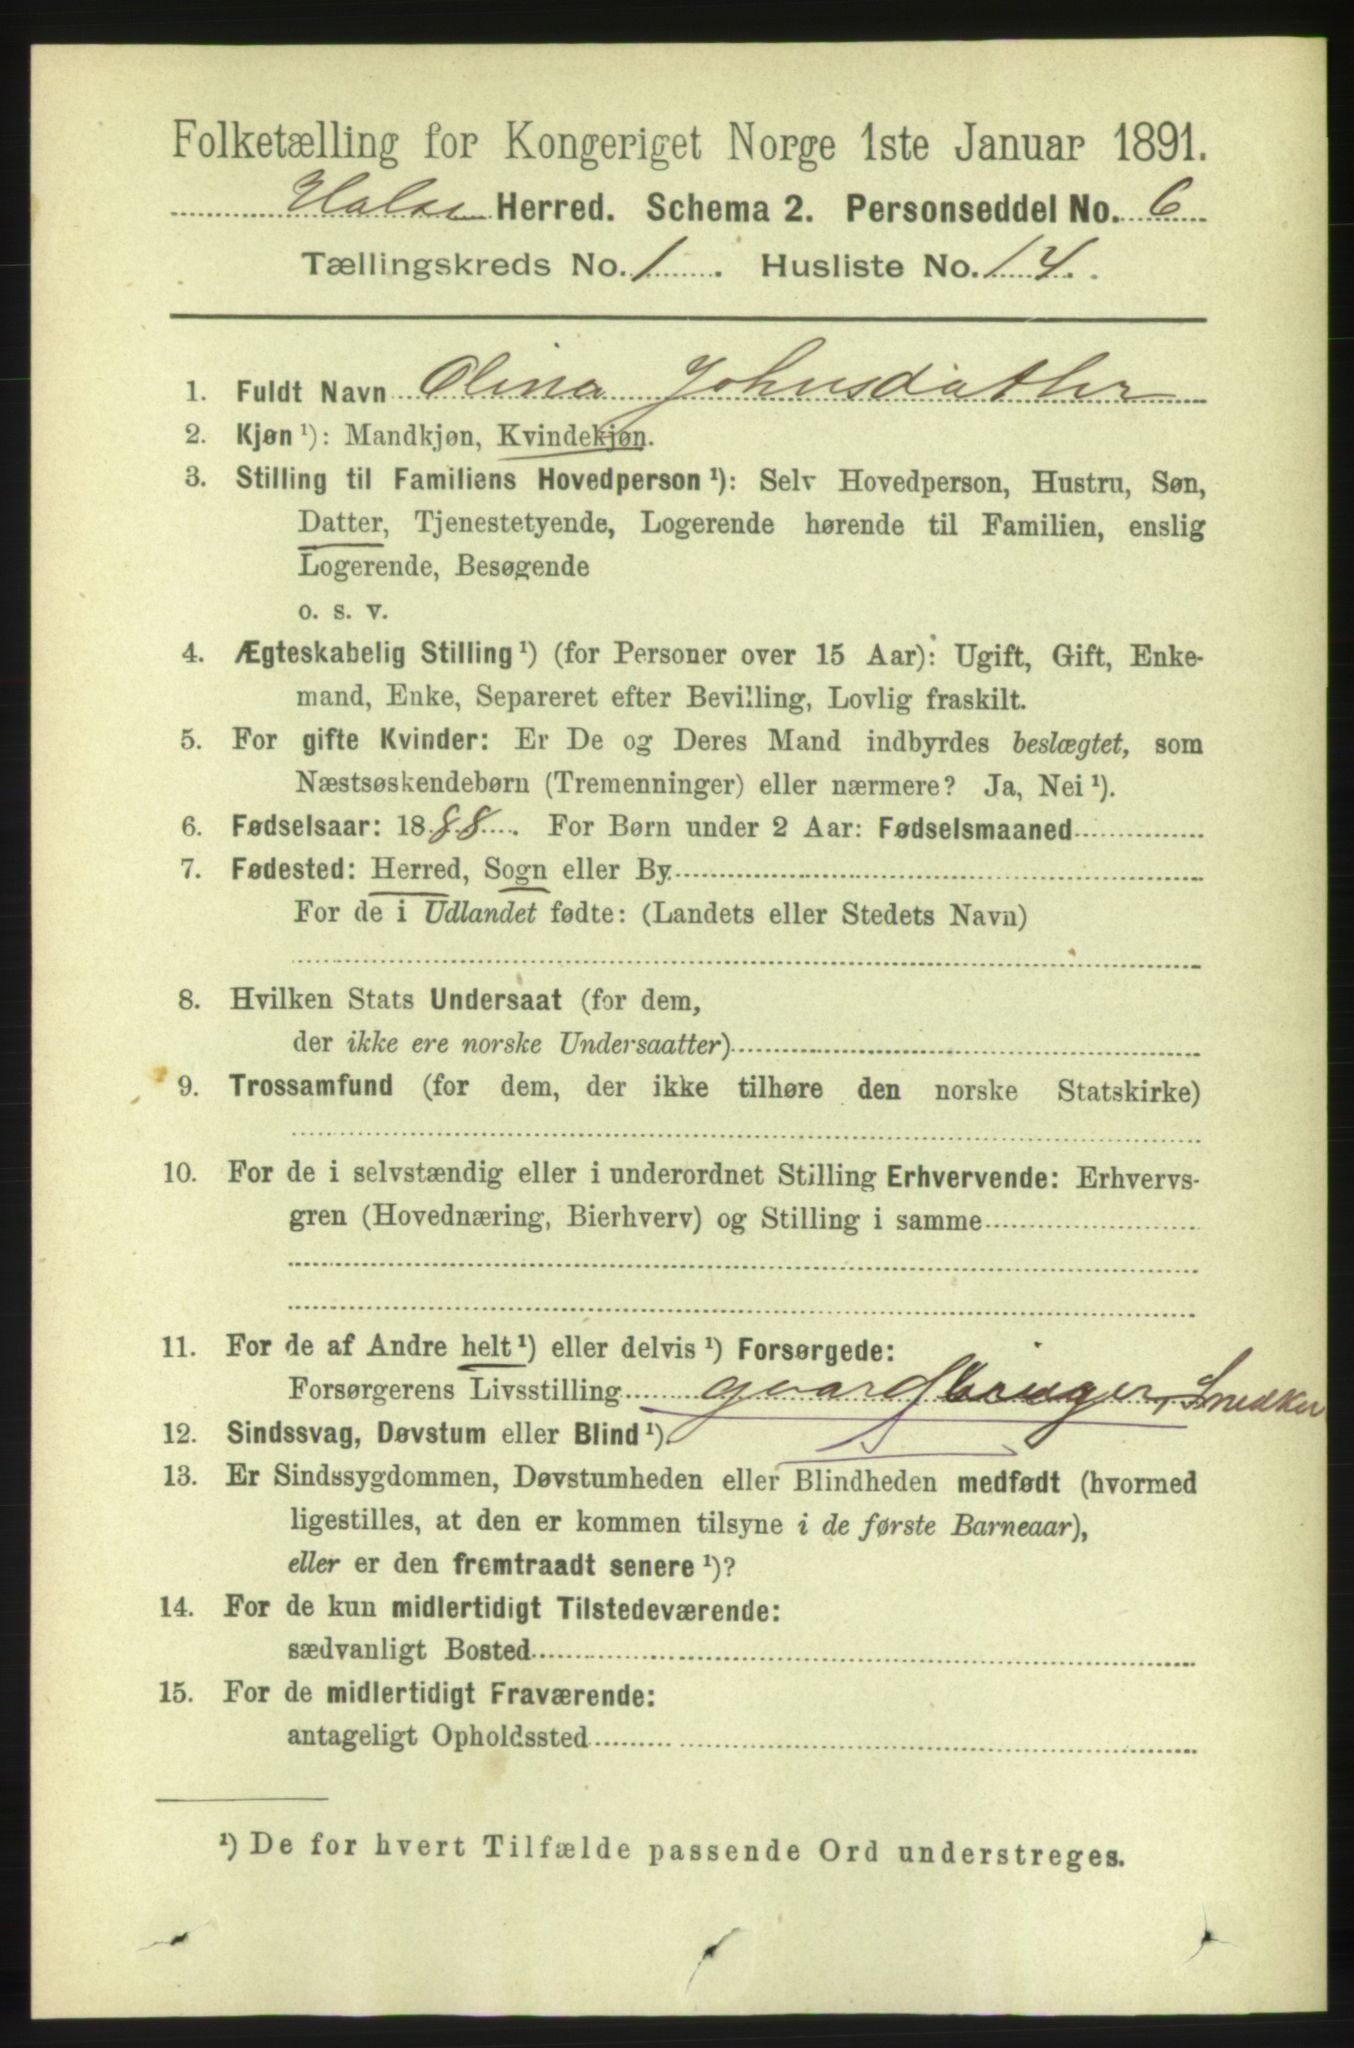 Folketælling for Kongeriget Norge 1ste Januar 1891.
Halse Herred. Schema 2. Personseddel No. 6
Tællingskreds No. 1. Husliste No. 14.
1. Fuldt Navn Olina Johnsdatter
2. Kjøn ¹): Mandkjøn, Kvindekjøn.
3. Stilling til Familiens Hovedperson ¹): Selv Hovedperson, Hustru, Søn,
Datter, Tjenestetyende, Logerende hørende til Familien, enslig
Logerende, Besøgende
o. s. v.
4. Ægteskabelig Stilling ¹) (for Personer over 15 Aar): Ugift, Gift, Enke-
mand, Enke, Separeret efter Bevilling, Lovlig fraskilt.
5. For gifte Kvinder: Er De og Deres Mand indbyrdes beslægtet, som
Næstsøskendebørn (Tremenninger) eller nærmere? Ja, Nei ¹).
6. Fødselsaar: 1888. For Børn under 2 Aar: Fødselsmaaned
7. Fødested: Herred, Sogn eller By
For de i Udlandet fødte: (Landets eller Stedets Navn)
8. Hvilken Stats Undersaat (for dem,
der ikke ere norske Undersaatter)
9. Trossamfund (for dem, der ikke tilhøre den norske Statskirke)
10. For de i selvstændig eller i underordnet Stilling Erhvervende: Erhvervs-
gren (Hovednæring, Bierhverv) og Stilling i samme
11. For de af Andre helt ¹) eller delvis ¹) Forsørgede:
Forsørgerens Livsstilling gaardbruger, Snedker
12. Sindssvag, Døvstum eller Blind ¹).
13. Er Sindssygdommen, Døvstumheden eller Blindheden medfødt (hvormed
ligestilles, at den er kommen tilsyne i de første Barneaar),
eller er den fremtraadt senere ¹)?
14. For de kun midlertidigt Tilstedeværende:
sædvanligt Bosted
15. For de midlertidigt Fraværende:
antageligt Opholdssted
¹) De for hvert Tilfælde passende Ord understreges.